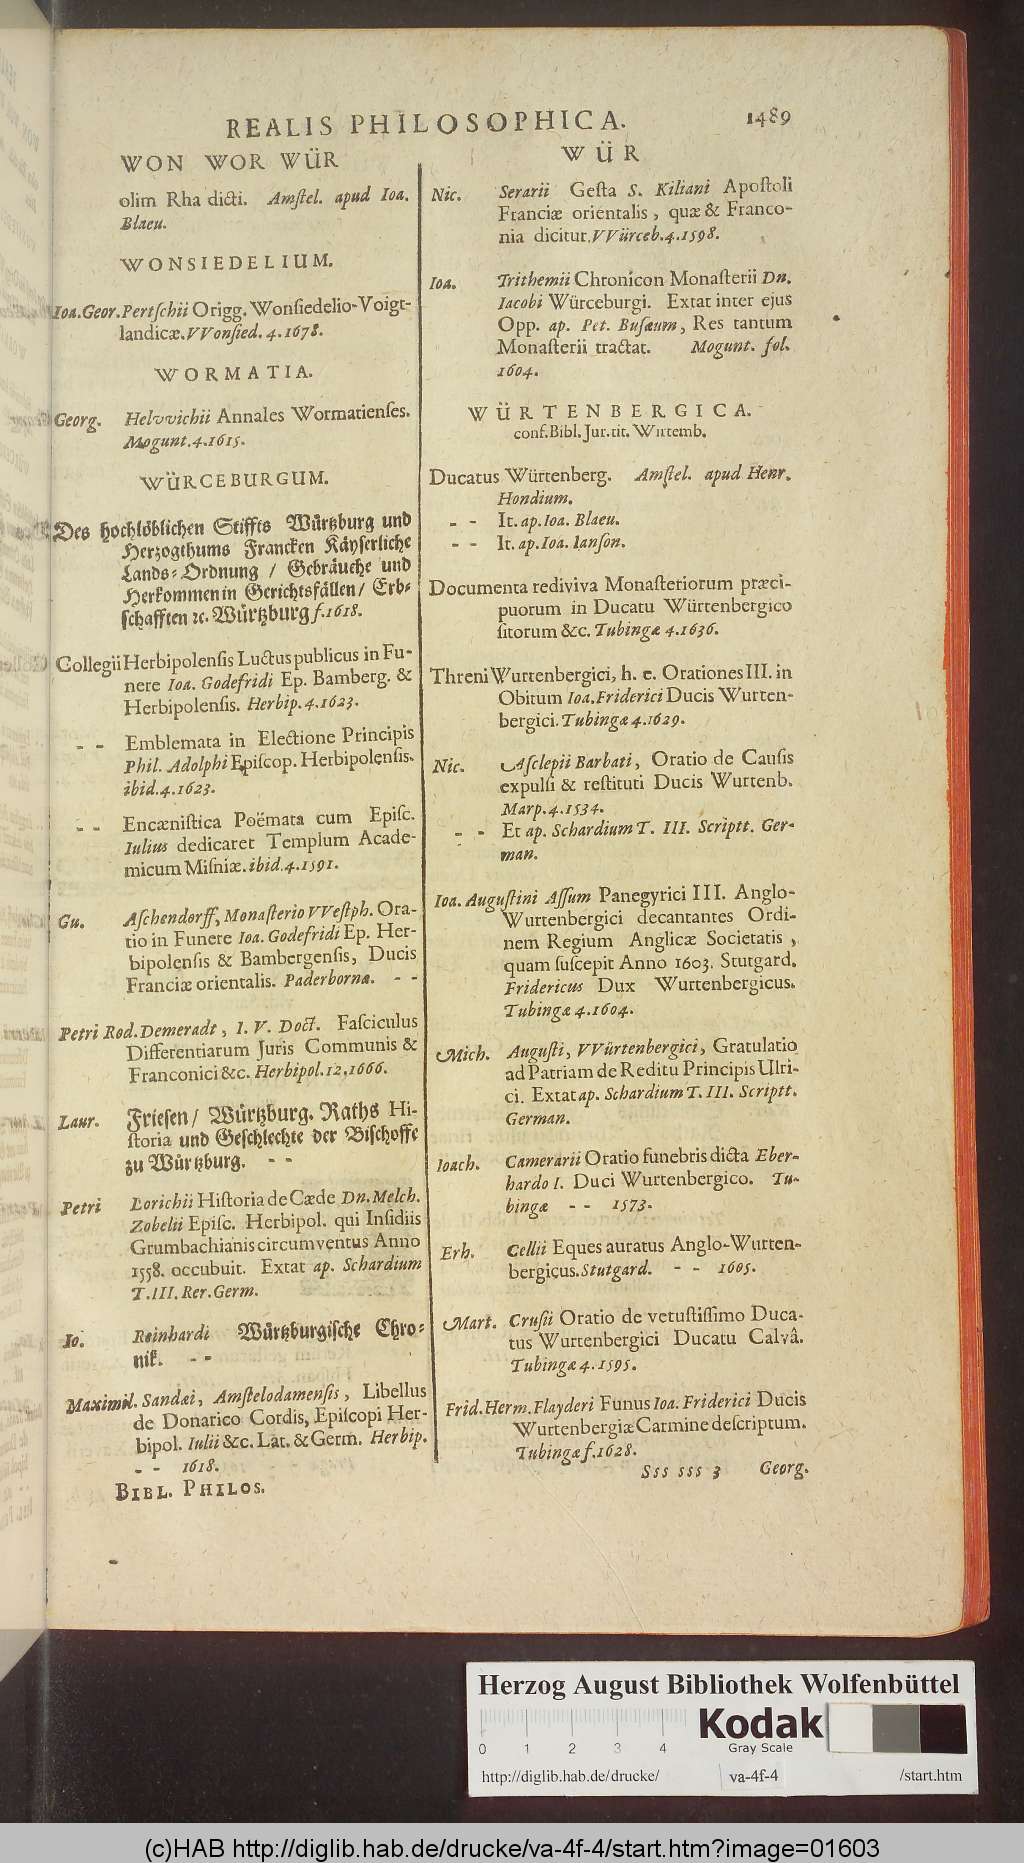 REALIS PHILOSOPHICA. 1489
WON WOR WÜR
olim Rha dicti. Amſtel. apud Ioa.
Blaeu.
WONSIEDELIUM.
Ioa. Geor. Pertſchii Origg. Wonſiedelio-Voigt-
landicæ. VVonſied. 4. 1678.
WORMATIA.
Georg. Helvvichii Annales Wormatienſes.
Mogunt. 4. 1615.
WÜRCEBURGUM.
Des hochlöblichen Stiffts Würtzburg und
Herzogthums Francken Käyſerliche
Lands-Ordnung / Gebräuche und
Herkommen in Gerichtsfällen / Erb-
ſchafften ꝛc. Würtzburg f. 1618.
Collegii Herbipolenſis Luctus publicus in Fu-
nere Ioa. Godefridi Ep. Bamberg. &
Herbipolenſis. Herbip. 4. 1623.
- - Emblemata in Electione Principis
Phil. Adolphi Epiſcop. Herbipolenſis.
ibid. 4. 1623.
- - Encæniſtica Poëmata cum Epiſc.
Iulius dedicaret Templum Acade-
micum Miſniæ. ibid. 4. 1591.
Gu. Aſchendorff, Monaſterio VVeſtph. Ora-
tio in Funere Ioa. Godefridi Ep. Her-
bipolenſis & Bambergenſis, Ducis
Franciæ orientalis. Paderbornæ. - -
Petri Rod. Demeradt, I. V. Doct. Faſciculus
Differentiarum Juris Communis &
Franconici &c. Herbipol. 12. 1666.
Laur. Frieſen / Würtzburg. Raths Hi-
ſtoria und Geſchlechte der Biſchoffe
zu Würtzburg. - -
Petri Lorichii Hiſtoria de Cæde Dn. Melch.
Zobelii Epiſc. Herbipol. qui Inſidiis
Grumbachianis circumventus Anno
1558. occubuit. Extat ap. Schardium
T. III. Rer. Germ.
Io. Reinhardi Würtzburgiſche Chro-
nik. - -
Maximil. Sandæi, Amſtelodamenſis, Libellus
de Donarico Cordis, Epiſcopi Her-
bipol. Iulii &c. Lat. & Germ. Herbip.
- - 1618.
BIBL. PHILOS.
WÜR
Nic. Serarii Geſta S. Kiliani Apoſtoli
Franciæ orientalis, quæ & Franco-
nia dicitur. VVürceb. 4. 1598.
Ioa. Trithemii Chronicon Monaſterii Dn.
Iacobi Würceburgi. Extat inter ejus
Opp. ap. Pet. Buſæum, Res tantum
Monaſterii tractat. Mogunt. fol.
1604.
WÜRTENBERGICA.
conf. Bibl. Jur. tit. Wirtemb.
Ducatus Würtenberg. Amſtel. apud Henr.
Hondium.
- - It. ap. Ioa. Blaeu.
- - It. ap. Ioa. Ianſon.
Documenta rediviva Monaſteriorum præci-
puorum in Ducatu Würtenbergico
ſitorum &c. Tubingæ 4. 1636.
Threni Wurtenbergici, h. e. Orationes III. in
Obitum Ioa. Friderici Ducis Wurten-
bergici. Tubingæ 4. 1629.
Nic. Aſclepii Barbati, Oratio de Cauſis
expulſi & reſtituti Ducis Wurtenb.
Marp. 4. 1534.
- - Et ap. Schardium T. III. Scriptt. Ger-
man.
Ioa. Auguſtini Aſſum Panegyrici III. Anglo-
Wurtenbergici decantantes Ordi-
nem Regium Anglicæ Societatis,
quam ſuſcepit Anno 1603. Stutgard.
Fridericus Dux Wurtenbergicus.
Tubingæ 4. 1604.
Mich. Auguſti, VVürtenbergici, Gratulatio
ad Patriam de Reditu Principis Ulri-
ci. Extat ap. Schardium T. III. Scriptt.
German.
Ioach. Camerarii Oratio funebris dicta Eber-
hardo I. Duci Wurtenbergico. Tu-
bingæ - - 1573.
Erh. Cellii Eques auratus Anglo-Wurten-
bergicus. Stutgard. - - 1605.
Mart. Cruſii Oratio de vetuſtiſſimo Duca-
tus Wurtenbergici Ducatu Calvâ.
Tubingæ 4. 1595.
Frid. Herm. Flayderi Funus Ioa. Friderici Ducis
Wurtenbergiæ Carmine deſcriptum.
Tubingæ f. 1628.
Sss sss 3 Georg.
Herzog August Bibliothek Wolfenbüttel
Kodak
Gray Scale
0 1 2 3 4
http://diglib.hab.de/drucke/ va-4f-4 /start.htm
(c)HAB http://diglib.hab.de/drucke/va-4f-4/start.htm?image=01603